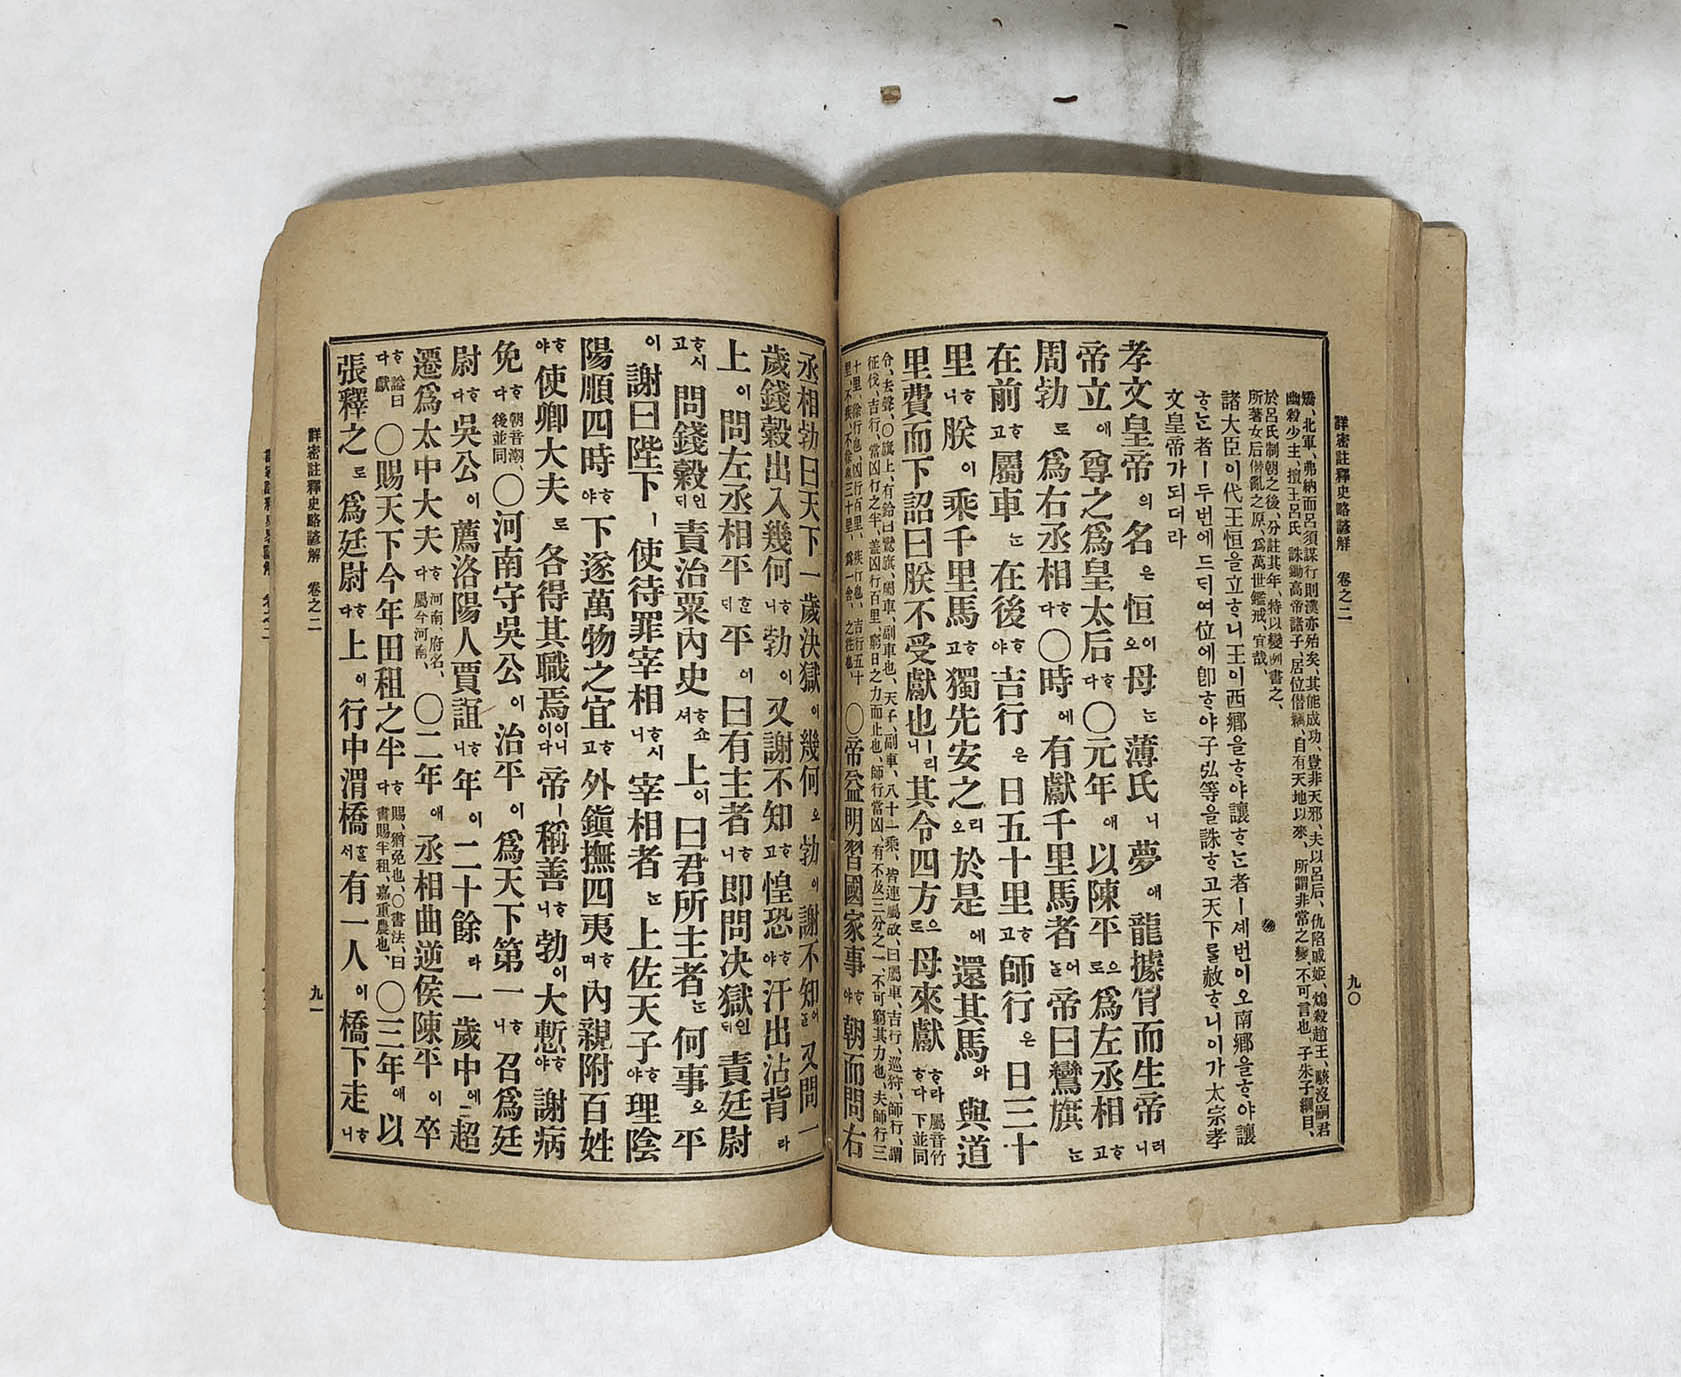 詳密註釋史略諺解 卷之二 九〇
矯、北軍、弗納而呂須謀行則漢亦殆矣、其能成功、豈非天邪、夫以呂后、仇陷戚姬、鴆殺趙王、駭沒嗣君
幽殺少主、擅王呂氏 誅鋤高帝諸子、居位僭稱、自有天地以來、所謂非常之變、不可言也、子朱子綱目、
於呂氏制朝之後、分註其年、特以變例書之、
所著女后僭亂之原、爲萬世鑑戒、宜哉、
諸大臣이代王恒을立ᄒᆞ니王이西鄕을ᄒᆞ야讓ᄒᆞᄂᆞᆫ者ㅣ세번이오南鄕을ᄒᆞ야讓
ᄒᆞᄂᆞᆫ者ㅣ두번에드ᄃᆡ여位에卽ᄒᆞ야子弘等을誅ᄒᆞ고天下ᄅᆞᆯ赦ᄒᆞ니이가太宗孝
文皇帝가되더라
孝文皇帝의名은恒이오母ᄂᆞᆫ薄氏니夢에龍據胷而生帝러니
帝立에尊之爲皇太后ᄒᆞ다〇元年에以陳平으로爲左丞相ᄒᆞ고
周勃로爲右丞相ᄒᆞ다〇時에有獻千里馬者어ᄂᆞᆯ帝曰鸞旗ᄂᆞᆫ
在前ᄒᆞ고屬車ᄂᆞᆫ在後ᄒᆞ야吉行은日五十里ᄒᆞ고師行은日三十
里ᄒᆞ니朕이乘千里馬ᄒᆞ고獨先安之리오於是에還其馬와與道
里費而下詔曰朕不受獻也ㅣ리니其令四方으로母來獻ᄒᆞ라ᄒᆞ다 屬音竹下並同
令、去聲、〇旗上、有給曰鸞旗、屬車、副車也、天子、副車、八十一乘、皆連屬故、曰屬車、吉行、巡狩、師行、謂
征伐、吉行、當凶行之半、蓋凶行百里、窮日之力而止也、師行當凶、有不及三分之一不可窮其力也、夫師行三
十里、徐行也、凶行百里、疾行也、吉行五十
里、不疾、不徐也三十里、爲一舍、之性也、〇帝益明習國家事ᄒᆞ야朝而問右
丞相勃曰天下一歲決獄이幾何오勃이謝不知어ᄂᆞᆯ又問一
歲錢穀出入幾何ᄒᆞ니勃이又謝不知ᄒᆞ고惶恐ᄒᆞ야汗出沾背라
上이問左丞相平ᄒᆞᆫᄃᆡ平이曰有主者ᄒᆞ니卽問決獄인ᄃᆡ責廷尉
ᄒᆞ시고問錢穀인ᄃᆡ責治粟內史ᄒᆞ쇼셔上이曰君所主者ᄂᆞᆫ何事오平
이謝曰陛下ㅣ使待罪宰相ᄒᆞ시니宰相者ᄂᆞᆫ上佐天子ᄒᆞ야理陰
陽順四時ᄒᆞ야下遂萬物之宜ᄒᆞ고外鎭撫四夷ᄒᆞ며內親附百姓
ᄒᆞ야使卿大夫로各得其職焉이니이다帝ㅣ稱善ᄒᆞ니勃이大慙ᄒᆞ야謝病
免ᄒᆞ다 朝音潮、後並同 〇河南守吳公이治平이爲天下第一ᄒᆞ니召爲廷
尉ᄒᆞ다吳公이薦洛陽人賈誼ᄒᆞ니年이二十餘라一歲中에超
遷爲太中大夫ᄒᆞ다 河南、府名、屬今河南、〇二年에丞相曲逆侯陳平이卒
ᄒᆞ다 諡曰獻 〇賜天下今年田租之半ᄒᆞ다 賜、猶免也、〇書法、曰書賜半租、嘉重農也、〇三年에以
張釋之로爲廷尉ᄒᆞ다上이行中渭橋ᄒᆞᆯ셔有一人이橋下走ᄒᆞ니
詳密註釋史略諺解 卷之二 九一